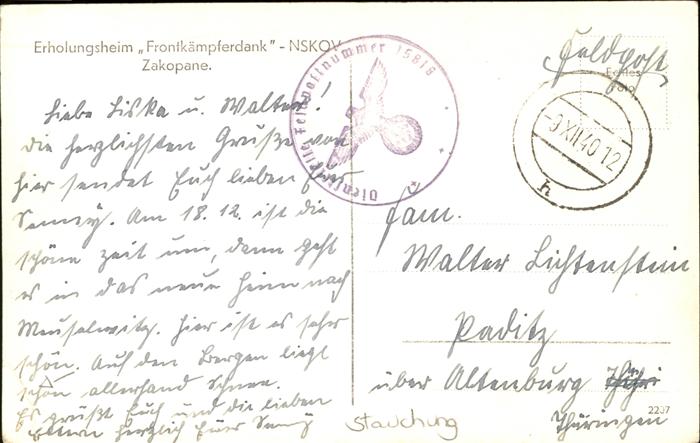 Erholungsheim „Frontkämpferdank" - NSKOV
Zakopane.
Dienststelle Feldpostnummer 15818
Feldpost
Echtes
Foto
-9.XII.40.12
h
Liebe Liska u. Walter!
Die herzlichsten Grüße von
hier sendet Euch lieben Euer
Am 18.12. ist die
schöne Zeit um, dann geht
es in das neue Heim nach
Meuselwitz. Hier ist es sehr
schön. Auf den Bergen liegt
schon allerhand Schnee.
Es grüßt Euch und die lieben
Eltern herzlich Euer
Fam.
Walter Lichtenstein
Paditz
über Altenburg
Thüringen
2237
Stauchung